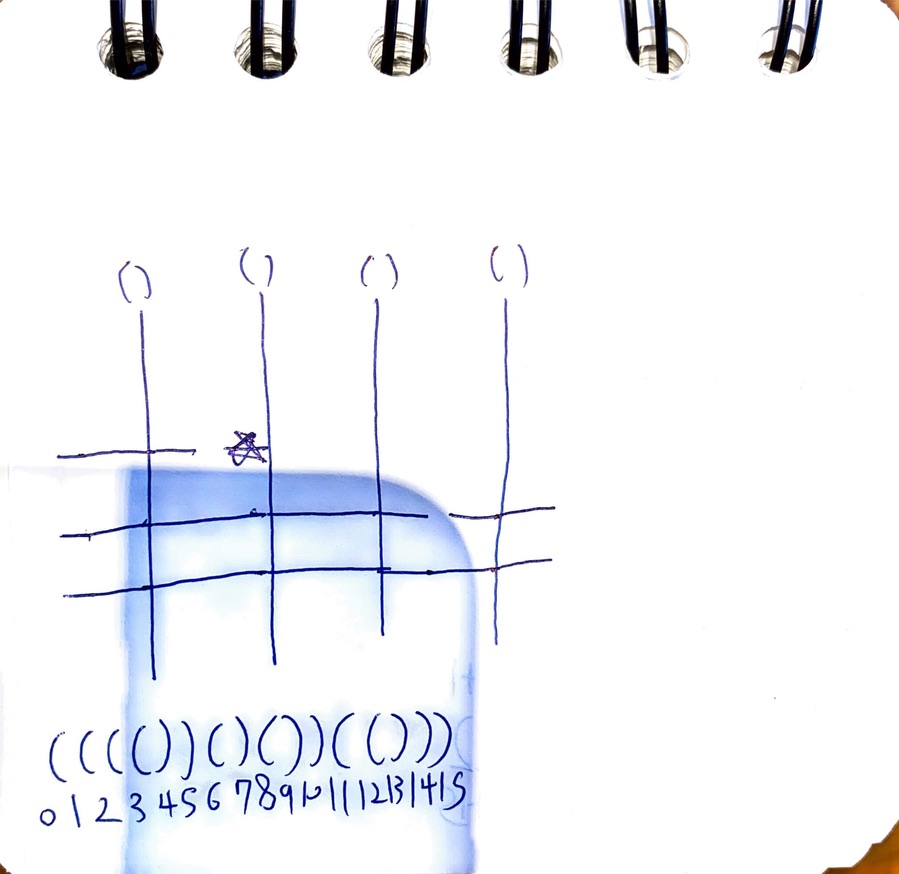 () () () ()
(((())()())(()))
0 1 2 3 4 5 6 7 8 9 10 11 12 13 14 15